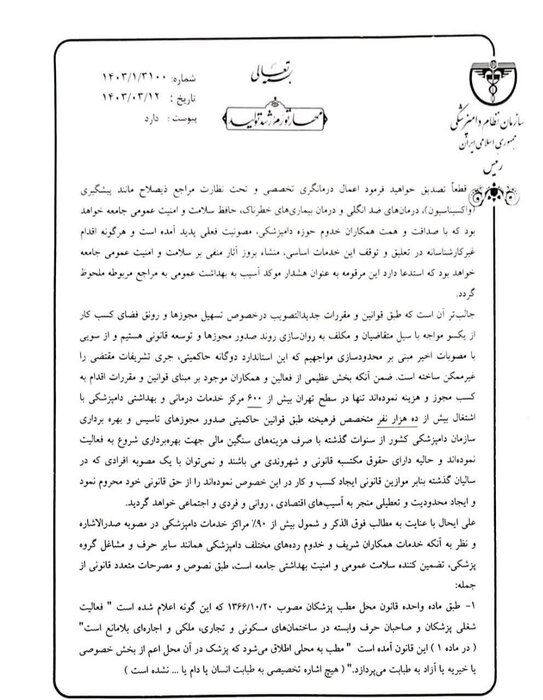 بسمه تعالی
مهار تورم رشد تولید
شماره: ۱۴۰۳/۱/۳۱۰۰
تاریخ : ۱۴۰۳/۰۳/۱۲
پیوست: دارد
سازمان نظام دامپزشکی
جمهوری اسلامی ایران
رئیس
قطعاً تصدیق خواهید فرمود اعمال درمانگری تخصصی و تحت نظارت مراجع ذیصلاح مانند پیشگیری
(واکسیناسیون)، درمان‌های ضد انگلی و درمان بیماری‌های خطرناک، حافظ سلامت و امنیت عمومی جامعه خواهد
بود که با صداقت و همت همکاران خدوم حوزه دامپزشکی، مصونیت فعلی پدید آمده است و هرگونه اقدام
غیرکارشناسانه در تعلیق و توقف این خدمات اساسی، منشاء بروز آثار منفی بر سلامت و امنیت عمومی جامعه
خواهد بود که استدعا دارد این مرقومه به عنوان هشدار موکد آسیب به بهداشت عمومی به مراجع مربوطه ملحوظ
گردد.
جالب‌تر آن است که طبق قوانین و مقررات جدیدالتصویب درخصوص تسهیل مجوزها و رونق فضای کسب کار
از یکسو مواجه با سیل متقاضیان و مکلف به روان‌سازی روند صدور مجوزها و توسعه قانونی هستیم و از سویی
با مصوبات اخیر مبنی بر محدودسازی مواجهیم که این استاندارد دوگانه حاکمیتی، جری تشریفات مقتضی را
غیرممکن ساخته است. ضمن آنکه بخش عظیمی از فعالین و همکاران موجود بر مبنای قوانین و مقررات اقدام به
کسب مجوز و هزینه نموده‌اند تنها در سطح تهران بیش از ۶۰۰ مرکز خدمات درمانی و بهداشتی دامپزشکی با
اشتغال بیش از ده هزار نفر متخصص فرهیخته طبق قوانین حاکمیتی صدور مجوزهای تاسیس و بهره برداری
سازمان دامپزشکی کشور از سنوات گذشته با صرف هزینه‌های سنگین مالی جهت بهره‌برداری شروع به فعالیت
نموده‌اند و حالیه دارای حقوق مکتسبه قانونی و شهروندی می باشند و نمی‌توان با یک مصوبه افرادی که در
سالیان گذشته بنابر موازین قانونی ایجاد کسب و کار در این خصوص نموده‌اند را از حق قانونی خود محروم نمود
و ایجاد محدودیت و تعطیلی منجر به آسیب‌های اقتصادی ، روانی و فردی و اجتماعی خواهد گردید.
علی ایحال با عنایت به مطالب فوق الذکر و شمول بیش از ۹۰٪ مراکز خدمات دامپزشکی در مصوبه صدرالاشاره
و نظر به آنکه خدمات همکاران شریف و خدوم رده‌های مختلف دامپزشکی همانند سایر حرف و مشاغل گروه
پزشکی، تضمین کننده سلامت عمومی و امنیت بهداشتی جامعه است، طبق نصوص و مصرحات متعدد قانونی از
جمله:
۱- طبق ماده واحده قانون محل مطب پزشکان مصوب ۱۳۶۶/۱۰/۲۰ که این گونه اعلام شده است " فعالیت
شغلی پزشکان و صاحبان حرف وابسته در ساختمان‌های مسکونی و تجاری، ملکی و اجاره‌ای بلامانع است"
( در ماده ۱ ) این قانون آمده است " مطب به محلی اطلاق می‌شود که پزشک در آن محل اعم از بخش خصوصی
یا خیریه یا آزاد به طبابت می‌پردازد." ( هیچ اشاره تخصیصی به طبابت انسان یا دام یا ... نشده است )